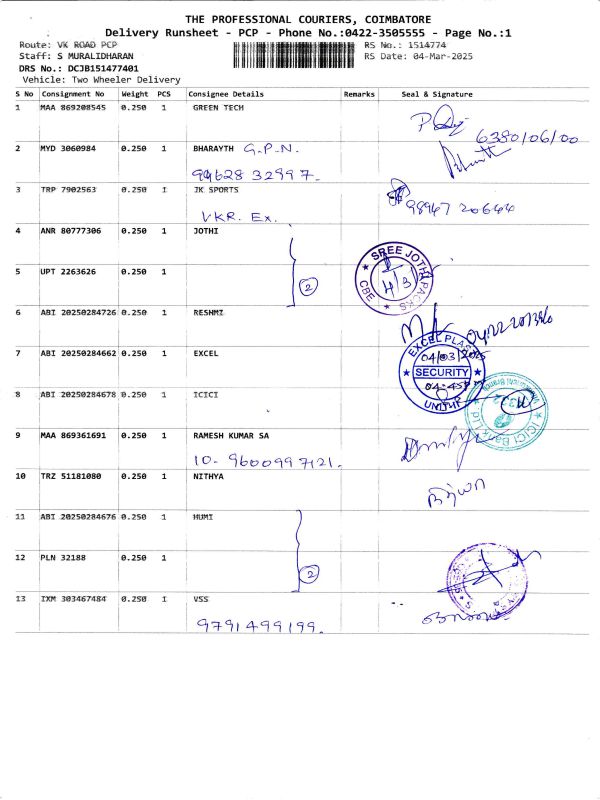 THE PROFESSIONAL COURIERS, COIMBATORE
Delivery Runsheet - PCP - Phone No.:0422-3505555 - Page No.:1
Route: VK ROAD PCP RS No.: 1514774
Staff: S MURALIDHARAN RS Date: 04-Mar-2025
DRS No.: DCJB151477401
Vehicle: Two Wheeler Delivery
S No Consignment No Weight PCS Consignee Details Remarks Seal & Signature
1 MAA 869208545 0.250 1 GREEN TECH
6380106100
2 MYD 3060984 0.250 1 BHARAYTH G.P.N.
99628 32997.
3 TRP 7902563 0.250 1 JK SPORTS
98947 20644
VKR. Ex.
4 ANR 80777306 0.250 1 JOTHI
SREE JOTHI PACKS CBE
4/3
5 UPT 2263626 0.250 1
2
6 ABI 20250284726 0.250 1 RESHMI
7 ABI 20250284662 0.250 1 EXCEL
EXCEL PLAS
04/03/2025
SECURITY
04:45P
UNIT
8 ABI 20250284678 0.250 1 ICICI
ICICI Bank Ltd
9 MAA 869361691 0.250 1 RAMESH KUMAR SA
10- 9600997121.
10 TRZ 51181080 0.250 1 NITHYA
நித்யா
11 ABI 20250284676 0.250 1 HUMI
12 PLN 32188 0.250 1
2
13 IXM 303467484 0.250 1 VSS
9791499199.